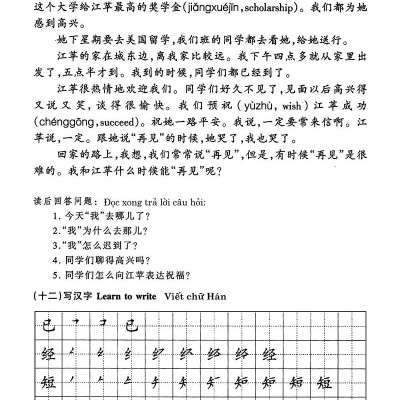 这个大学给江苹最高的奖学金(jiǎngxuéjīn,scholarship)。我们都为她
感到高兴。
她下星期要去美国留学,我们班的同学都去看她,给她送行。
江苹的家在城东边,离我家比较远。我下午四点多就从家里出
发了,五点半才到。我到的时候,同学们都已经到了。
江苹很热情地欢迎我们。同学们好久不见了,见面以后高兴得
又说又笑,谈得很愉快。我们预祝(yùzhù, wish)江苹成功
(chénggōng,succeed)。祝她一路平安。我说,一定要常来信啊。江
苹说,一定。跟她说“再见”的时候,她哭了,我也哭了。
回家的路上,我想,我们常常说“再见”,但是,有时候“再见”是很
难的。我和江苹什么时候能“再见”呢?
读后回答问题: Đọc xong trả lời câu hỏi:
1. 今天“我”去哪儿了?
2.“我”为什么去那儿?
3.“我”怎么迟到了?
4. 同学们聊得高兴吗?
5. 同学们怎么向江苹表达祝福?
(十二)写汉字 Learn to write Viết chữ Hán
已 已
经 经
短 短